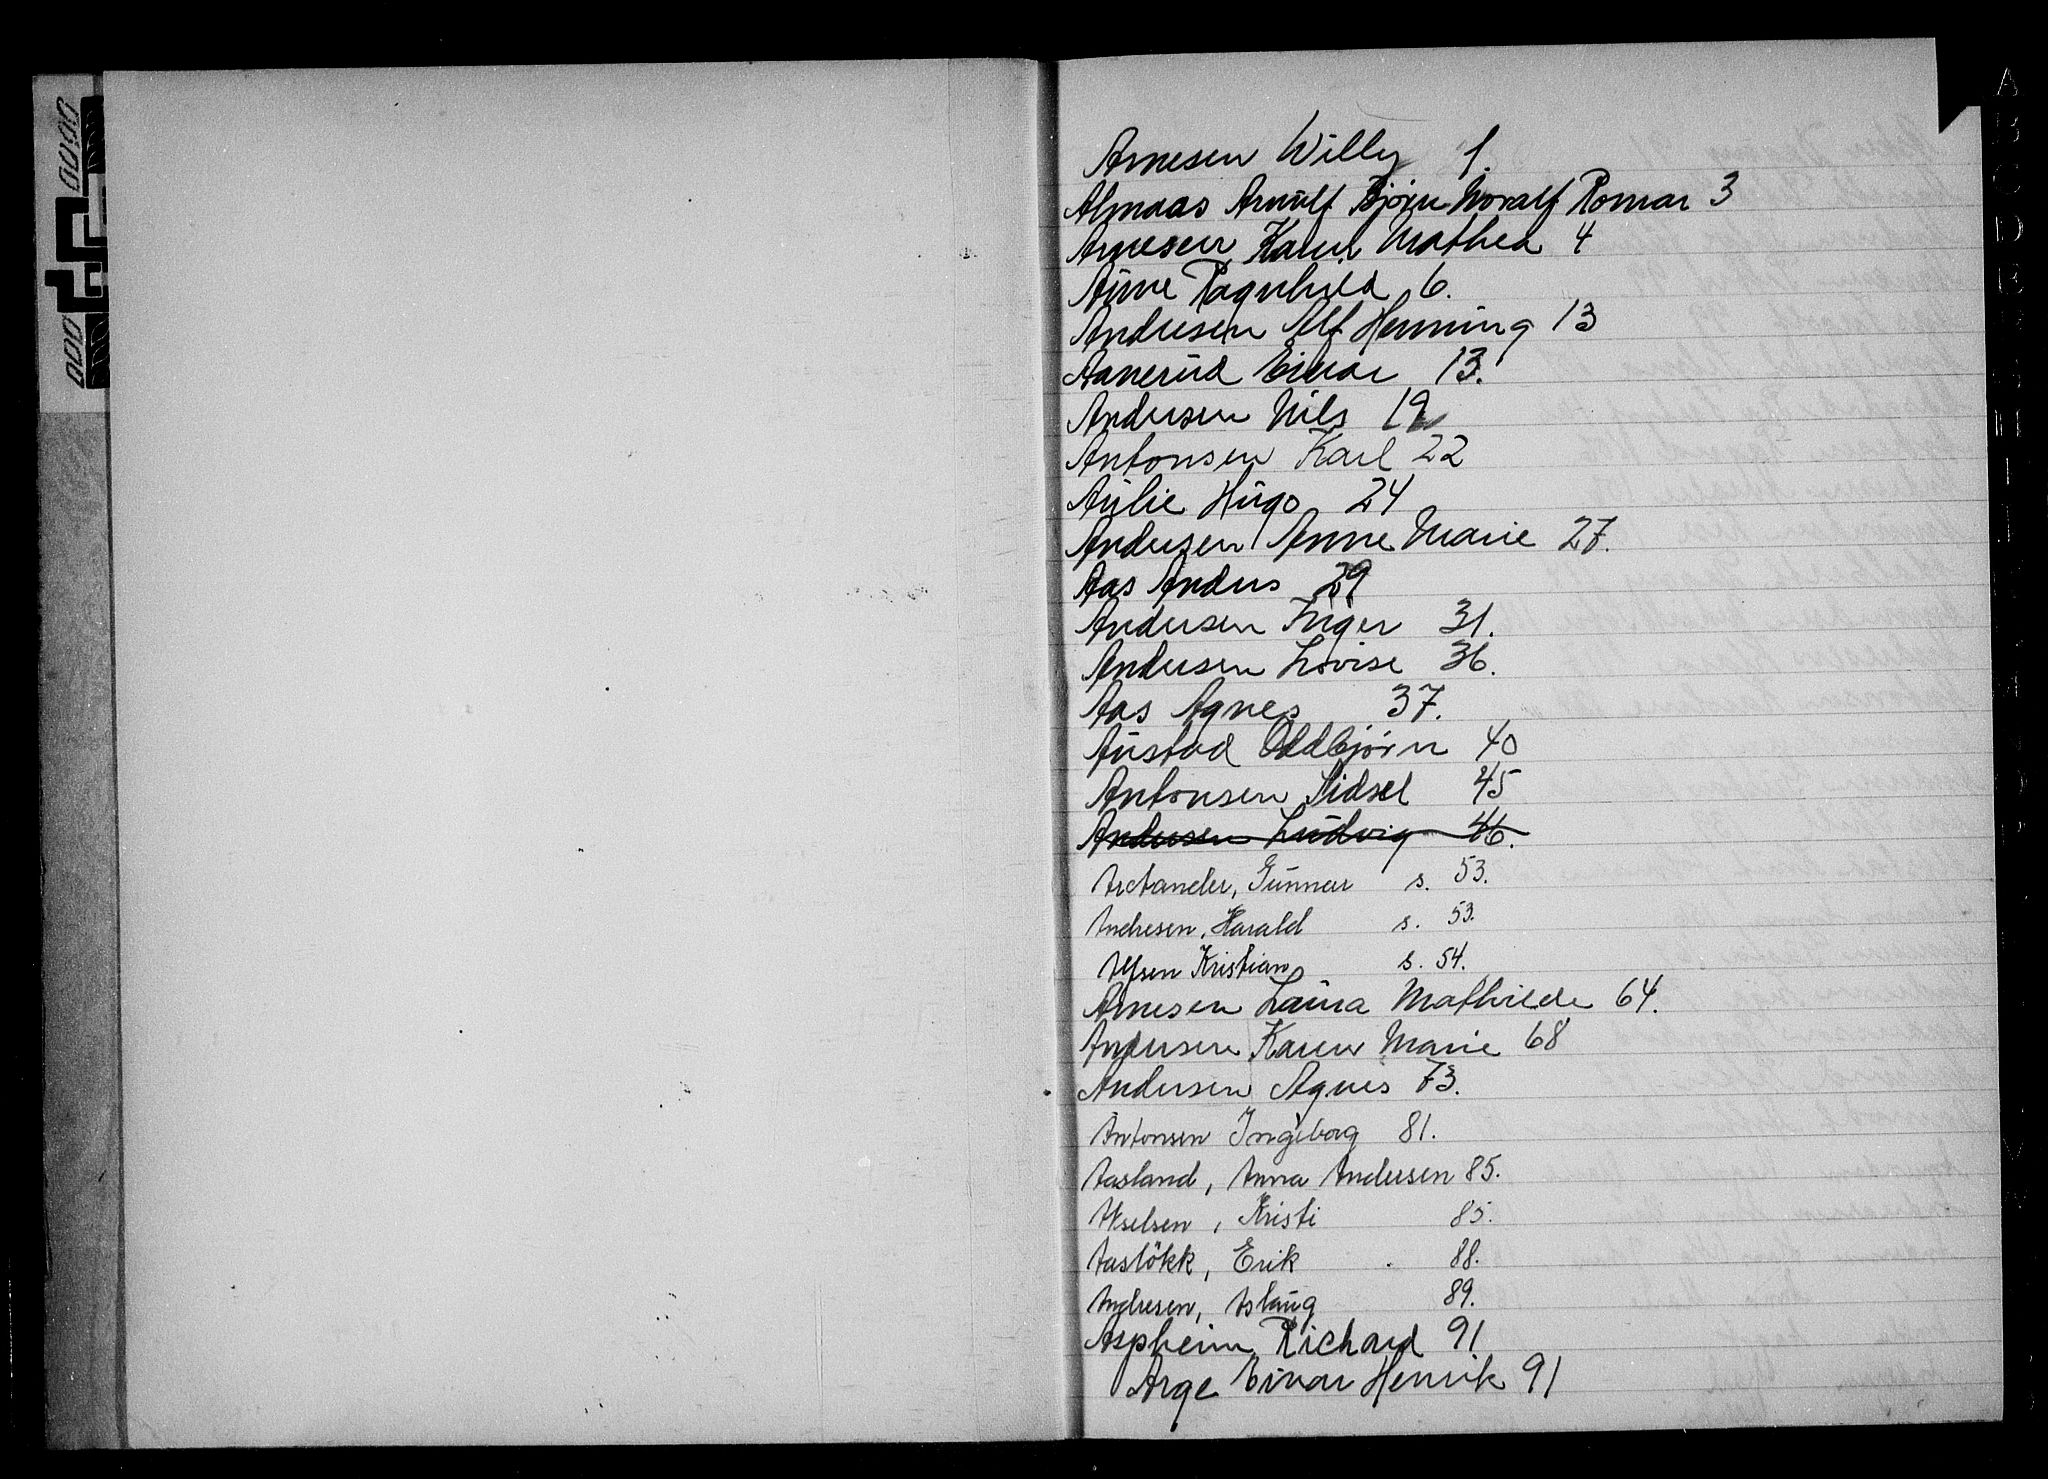 Arnesen Willy 1.
Almaas Arnulf Bjørn Noralf Roman 3
Arnesen Karen Mathea 4
Aune Ragnhild 6.
Andresen Alf Henning 13
Aanerud Einar 13.
Andersen Nils 19
Antonsen Karl 22
Aulie Hugo 24
Andersen Anne Marie 27.
Aas Anders 29
Andersen Inger 31.
Andersen Lovise 36.
Aas Agnes 37.
Austad Oddbjørn 40
Antonsen Sidsel 45
Andersen Ludvig 46.
Arctander, Gunnar s. 53.
Andresen, Harald s. 53.
Kristian s. 54.
Arnesen Laura Mathilde 64.
Andersen Karen Marie 68
Andersen Agnes 73.
Antonsen Ingeborg 81.
Aasland, Anna Andersen 85.
Akselsen, Kristi 85.
Aasløkk, Erik 88.
Andresen, Aslaug 89.
Aspheim Richard 91
Arge Einar Henrik 91